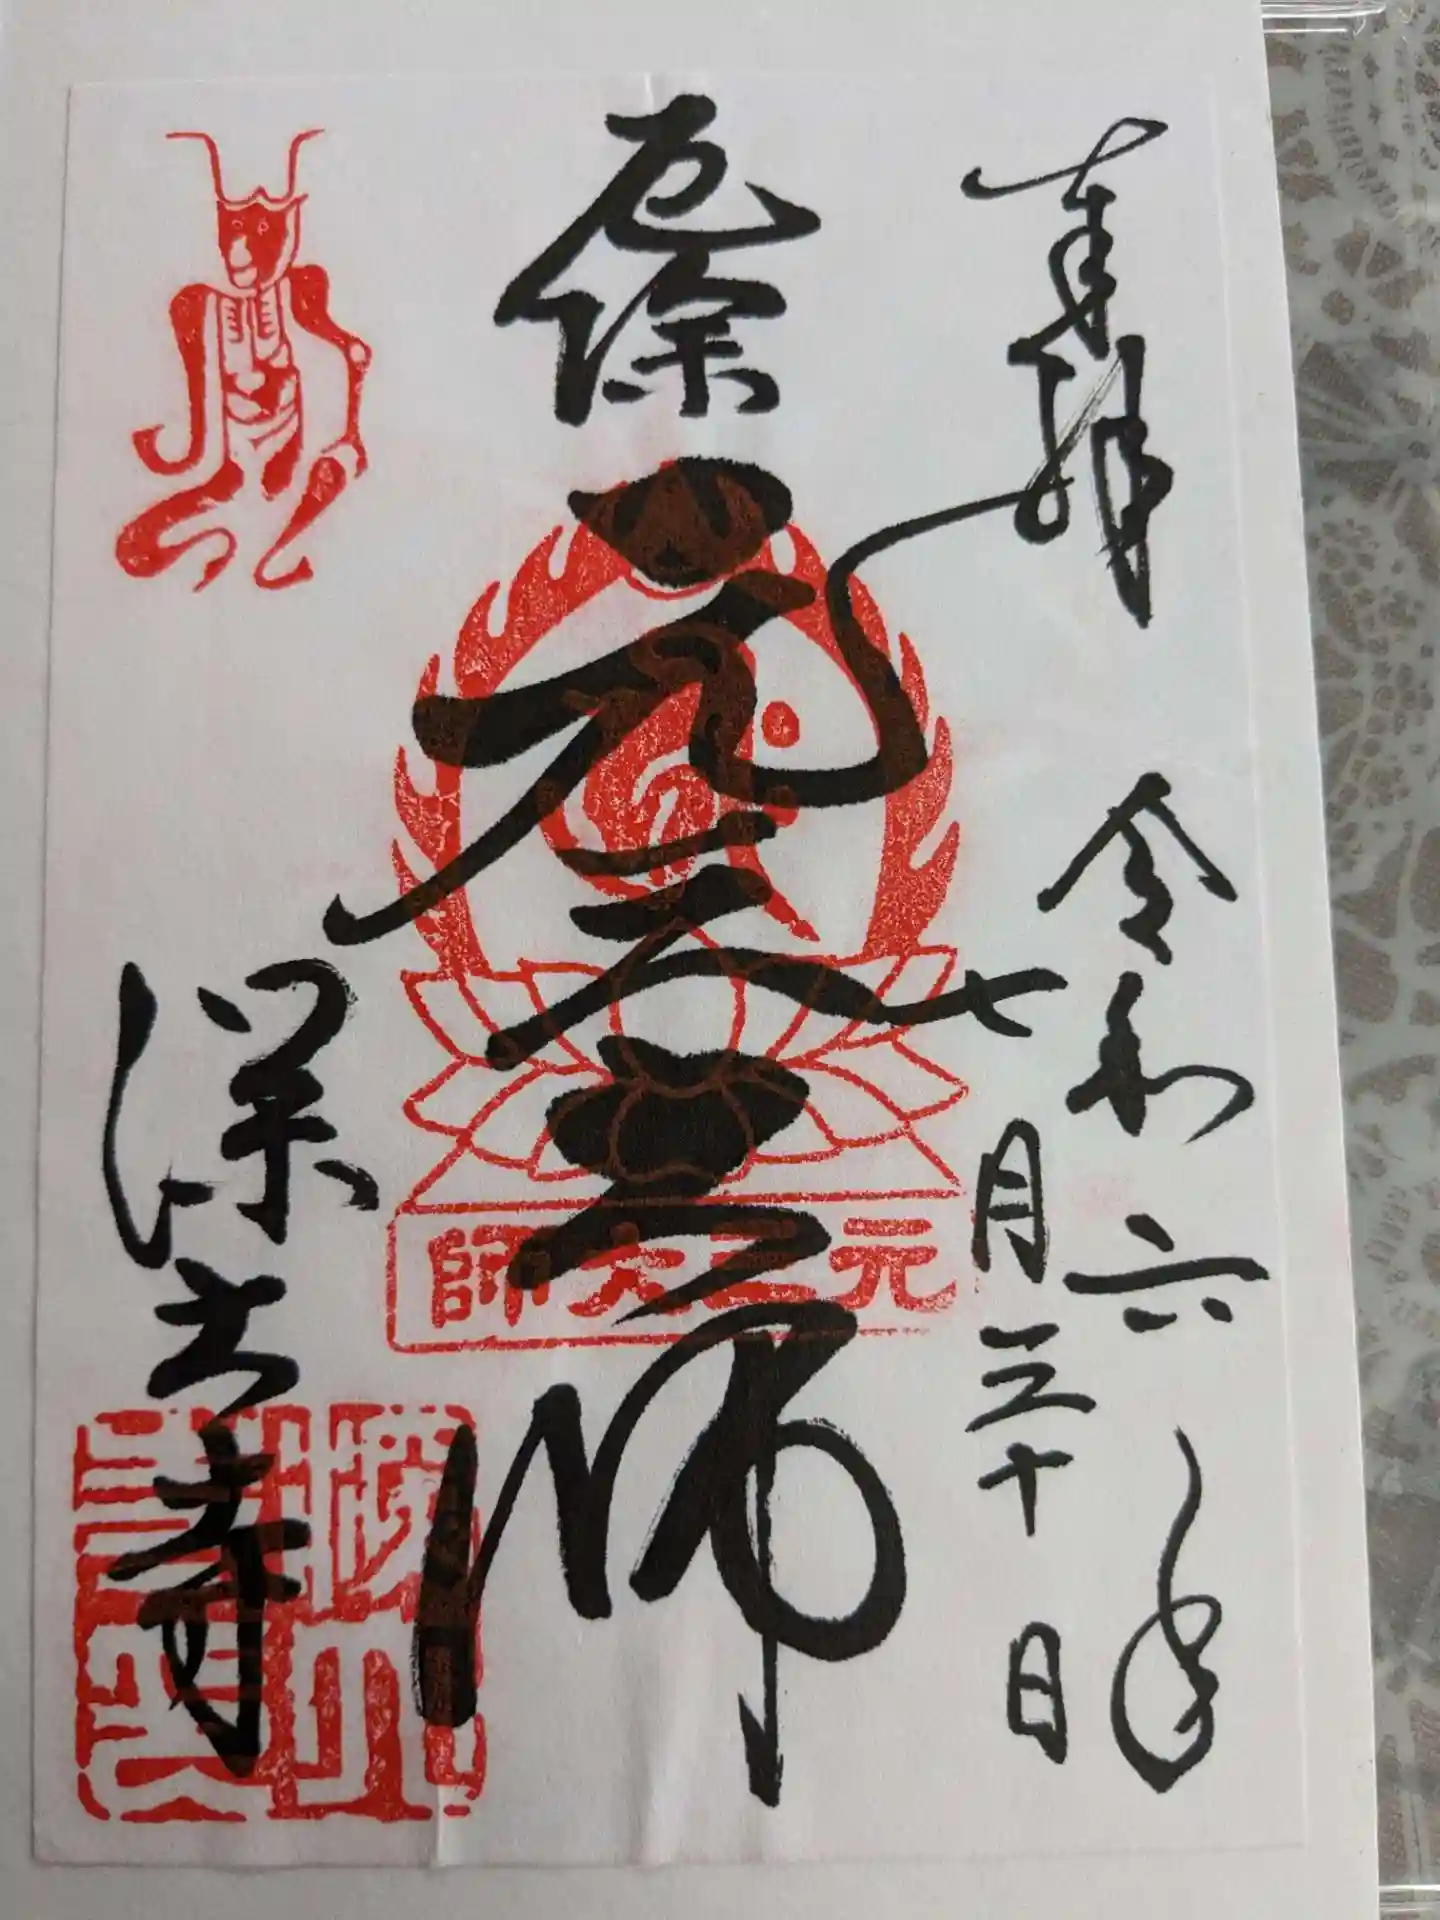 奉拝
令和六年
七月三十日
厄除
元三大師
元三大師
深大寺